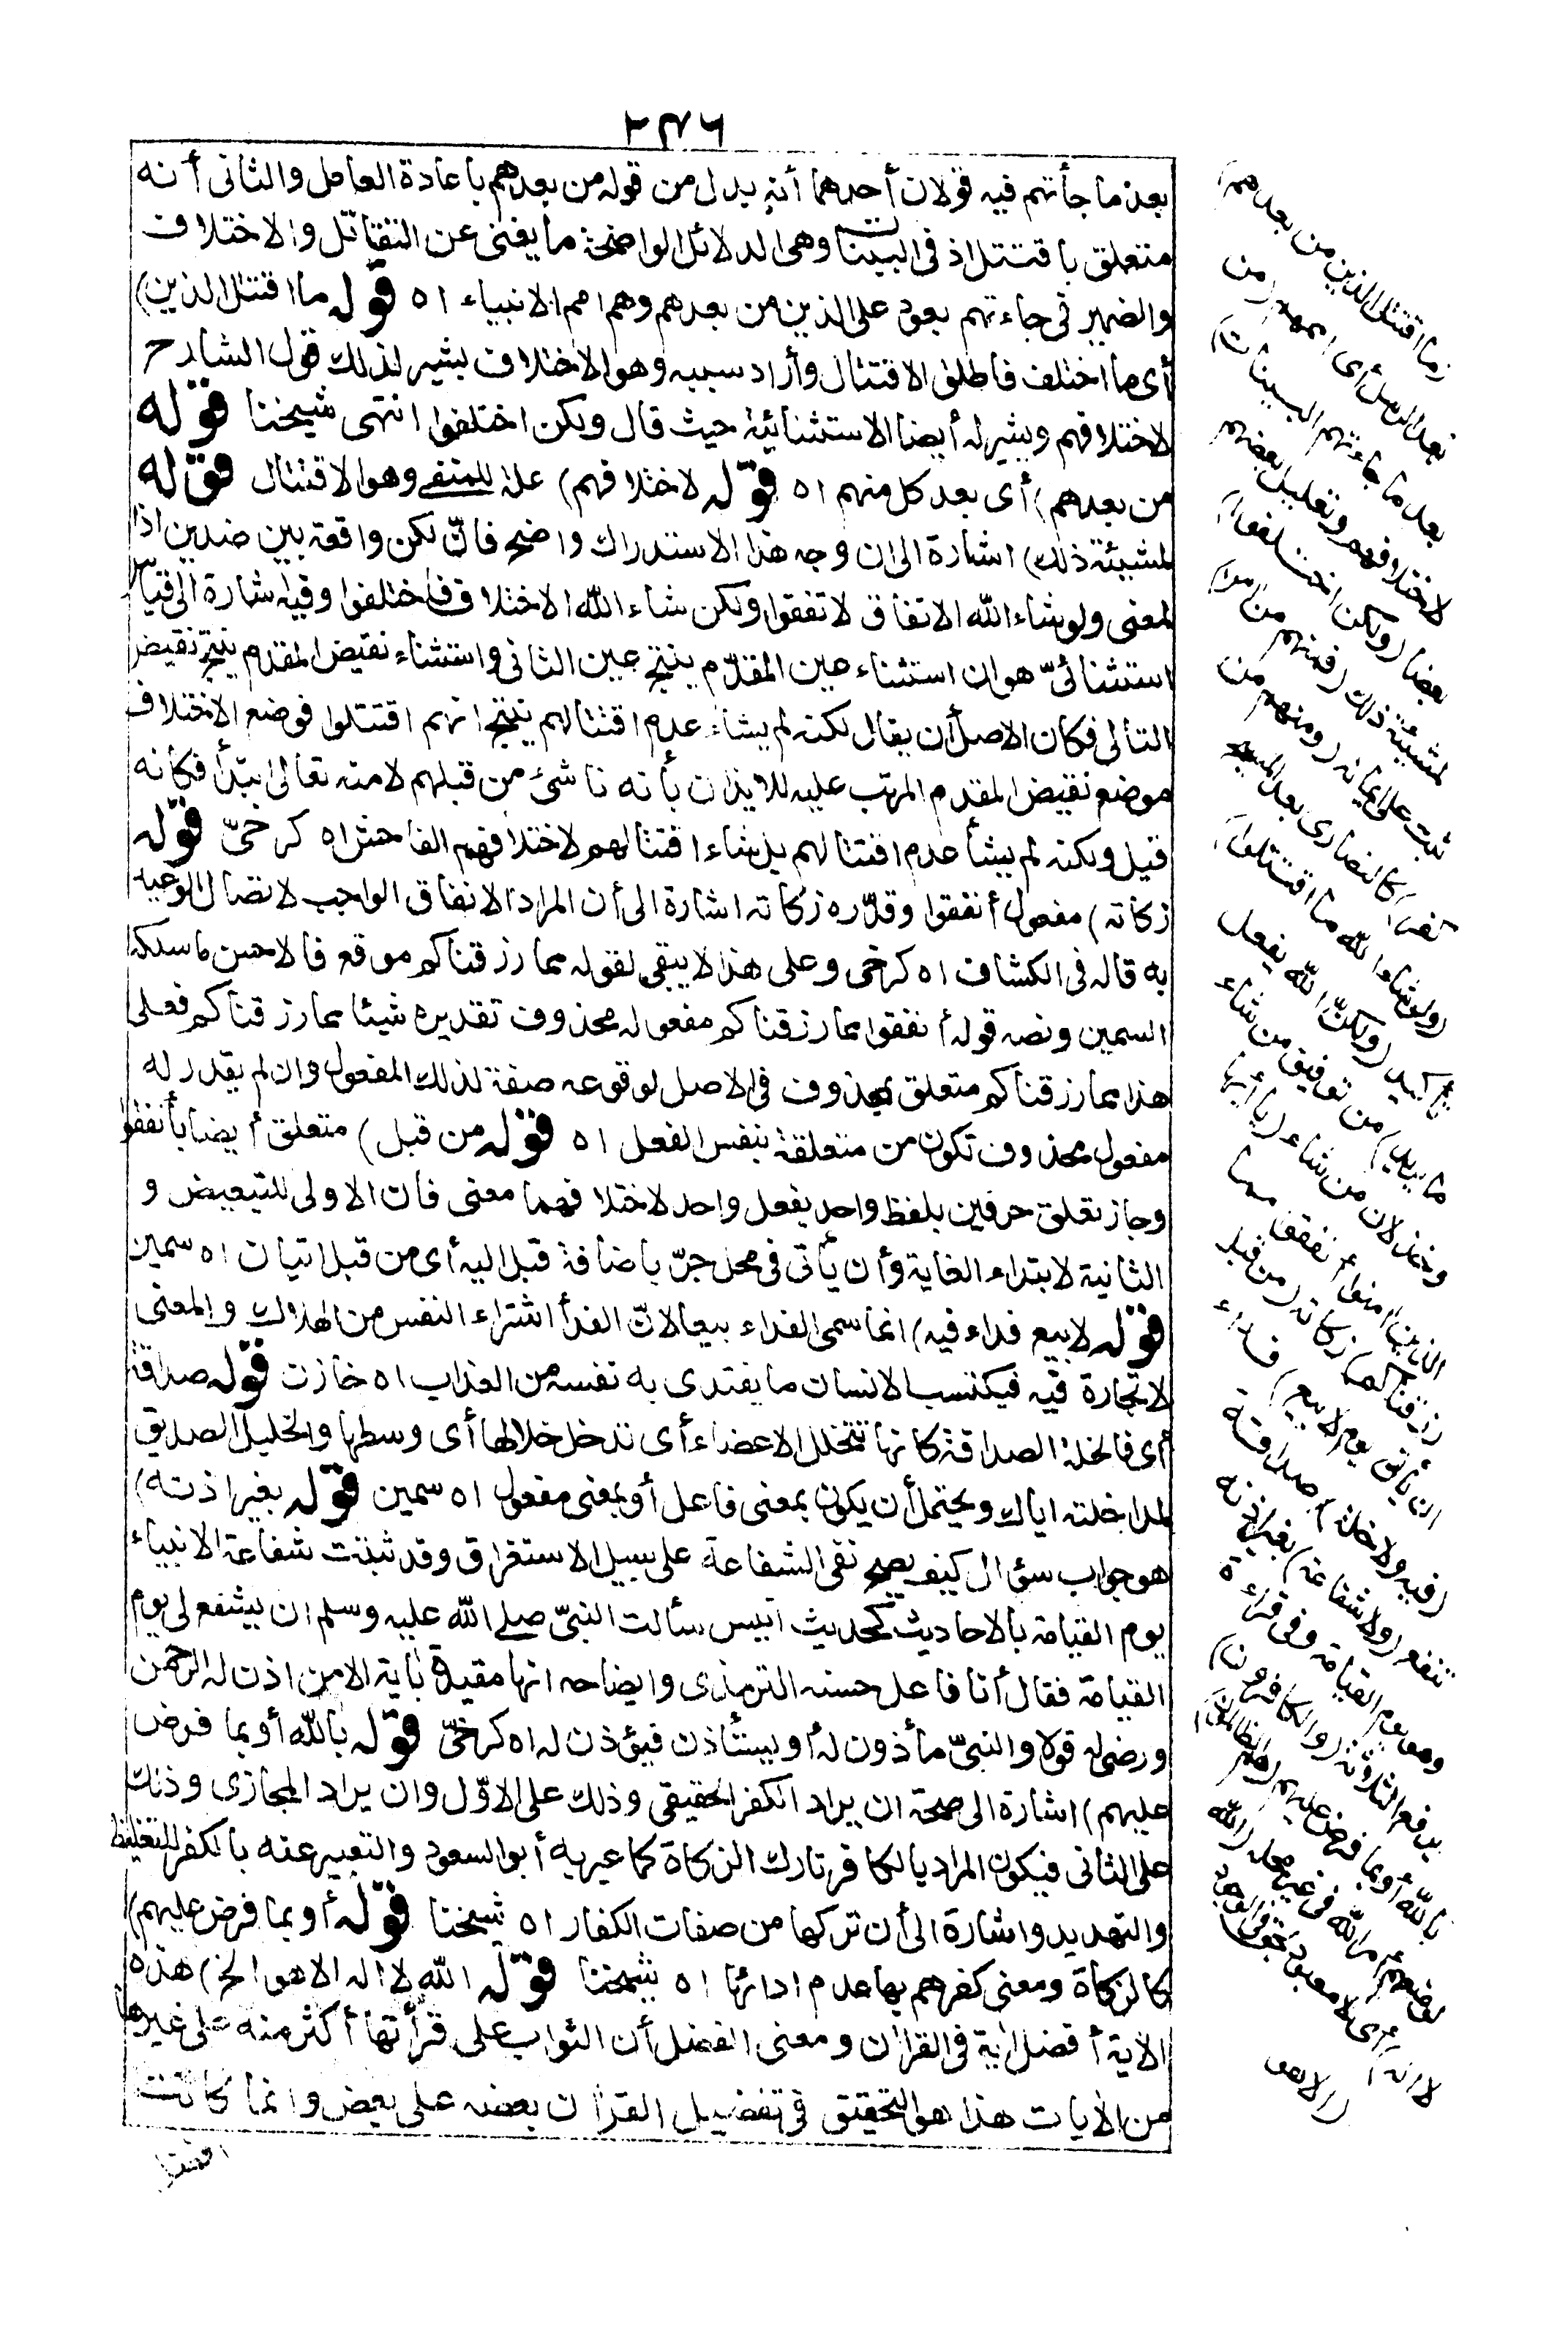 ٢٤٦
بعد ما جأتهم فيه قولان أحدهما أنه بدل من قوله من بعدهم باعادة العامل والثانى أنه
متعلق باقتتل اذ فى البينات وهى الدلائل الواضحة ما يغنى عن التقاتل والاختلاف
والضمير فى جاءتهم يعود على الذين من بعدهم وهم امم الانبياء اه قوله ما اقتتل الذين)
أى ما اختلف فأطلق الاقتتال وأراد سببه وهو الاختلاف يشير لذلك قول الشارح
لاختلافهم ويشير له أيضا الاستثنائية حيث قال ولكن اختلفوا انتهى شيخنا قوله
من بعدهم) أى بعد كل منهم اه قوله لاختلافهم) علة للمنفى وهو الاقتتال قوله
لمشيئة ذلك) اشارة الى ان وجه هذا الاستدراك واضح فان لكن واقعة بين ضدين اذا
لمعنى ولو شاء الله الاتفاق لاتفقوا ولكن شاء الله الاختلاف فاختلفوا وفيه اشارة الى قياس
استثنائىّ هو ان استثناء عين المقدّم ينتج عين الثانى واستثناء نقيض المقدم ينتج نقيض
التالى فكان الاصل أن يقال لكنه لم يشأ عدم اقتتالهم ينتج انهم اقتتلوا فوضع الاختلاف
موضع نقيض المقدم المرتب عليه للايذان بأنه ناشئ من قبلهم لا منه تعالى ابتدأ فكانه
قيل ولكنه لم يشأ عدم اقتتالهم بل شاء اقتتالهم لاختلافهم الفاحش اه كرخىّ قوله
زكاته) مفعول أنفقوا وقدّره زكاته اشارة الى أن المراد الانفاق الواجب لاتصال الوعيد
به قاله فى الكشاف اه كرخى وعلى هذا لا يبقى لقوله مما رزقناكم موقع فالاحسن ما سلكه
السمين ونصه قوله أنفقوا مما رزقناكم مفعوله محذوف تقديره شيئا مما رزقناكم فعلى
هذا مما رزقناكم متعلق بمحذوف فى الاصل لوقوعه صفة لذلك المفعول وان لم يقدر له
مفعول محذوف تكون من متعلقة بنفس الفعل اه قوله من قبل) متعلق أيضا بأنفقوا
وجاز تعلق حرفين بلفظ واحد بفعل واحد لاختلافهما معنى فان الاولى للتبعيض و
الثانية لابتداء الغاية وأن يأتى فى محل جرّ باضافة قبل اليه أى من قبل اتيان اه سمين
قوله لا بيع فداء فيه) انما سمى الفداء بيعا لانّ الفدأ اشتراء النفس من الهلاك والمعنى
لا تجارة فيه فيكتسب الانسان ما يفتدى به نفسه من العذاب اه خازن قوله صداقة
أى فالخلة الصداقة كانها تتخلل الاعضاء أى تدخل خلالها أى وسطها والخليل الصديق
لمداخلته اياك ويحتمل أن يكون بمعنى فاعل أو بمعنى مفعول اه سمين قوله بغير اذنه)
هو جواب سؤال كيف يصح نفى الشفاعة على سبيل الاستغراق وقد ثبتت شفاعة الانبياء
يوم القيامة بالاحاديث كحديث أنيس سألت النبىّ صلى الله عليه وسلم ان يشفع لى يوم
القيامة فقال أنا فاعل حسنه الترمذى وايضاحه انها مقيدة بآية الا من اذن له الرحمن
ورضى له قولا والنبىّ مأذون له أو يستأذن فيؤذن له اه كرخىّ قوله بالله أو بما فرض
عليهم) اشارة الى صحة ان يراد الكفر الحقيقى وذلك على الاوّل وان يراد المجازى وذلك
على الثانى فيكون المراد بالكافر تارك الزكاة كما عبر به أبو السعود والتعبير عنه بالكفر للتغليظ
والتهديد واشارة الى أن تركها من صفات الكفار اه شيخنا قوله أو بما فرض عليهم)
كالزكاة ومعنى كفرهم بها عدم ادائها اه شيخنا قوله الله لا اله الا هو الخ) هذه
الآية أفضل آية فى القرآن ومعنى الفضل أن الثواب على قرأتها أكثر منه على غيرها
من الآيات هذا هو التحقيق فى تفضيل القرآن بعضه على بعض وانما كانت
(ما اقتتل الذين من بعدهم)
بعد الرسل أى اممهم (من
بعد ما جاءتهم البينات)
لاختلافهم وتضليل بعضهم
بعضا (ولكن اختلفوا)
لمشيئة ذلك (فمنهم من آمن)
ثبت على ايمانه (ومنهم من
كفر) كالنصارى بعد المسيح
(ولو شاء الله ما اقتتلوا)
تأكيد (ولكنّ الله يفعل
ما يريد) من توفيق من شاء
وخذلان من شاء (يا أيها
الذين آمنوا أنفقوا مما
رزقناكم) زكاته (من قبل
ان يأتى يوم لا بيع) فداء
(فيه ولا خلة) صداقة
تنفع (ولا شفاعة) بغير اذنه
وهو يوم القيامة وفى قراءة
برفع الثلاثة (والكافرون)
بالله أو بما فرض عليهم (هم الظالمون)
لوضعهم أمر الله فى غير محله (الله
لا اله) أى لا معبود بحق فى الوجود
(الا هو